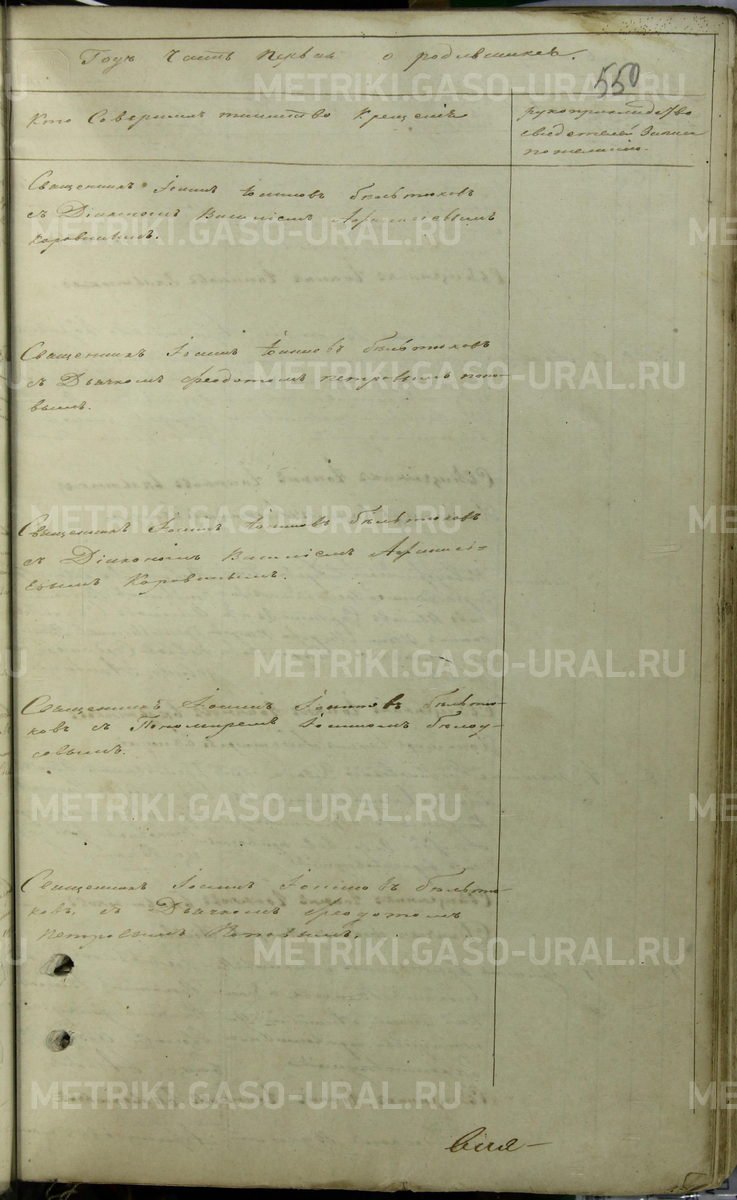 Году Часть Первая о родившихся.
550
Кто Совершилъ таинство Крещенія
рукоприкладство
свидетелей Записи
по желанію.
Священникъ Іоаннъ Іоанновъ Бѣльтюковъ
съ Діакономъ Василіемъ Афанасіевымъ
Коровинымъ.
Священникъ Іоаннъ Іоанновъ Бѣльтюковъ
съ Дьячкомъ Феодотомъ Петровымъ Попо-
вымъ.
Священникъ Іоаннъ Іоанновъ Бѣльтюковъ
съ Діакономъ Василіемъ Афанасі-
евымъ Коровинымъ.
Священникъ Іоаннъ Іоанновъ Бѣльтю-
ковъ съ Пономаремъ Іоанномъ Бѣлоу-
совымъ.
Священникъ Іоаннъ Іоанновъ Бѣльтю-
ковъ, съ Дьячкомъ Феодотомъ
Петровымъ Поповымъ.
METRIKI.GASO-URAL.RU